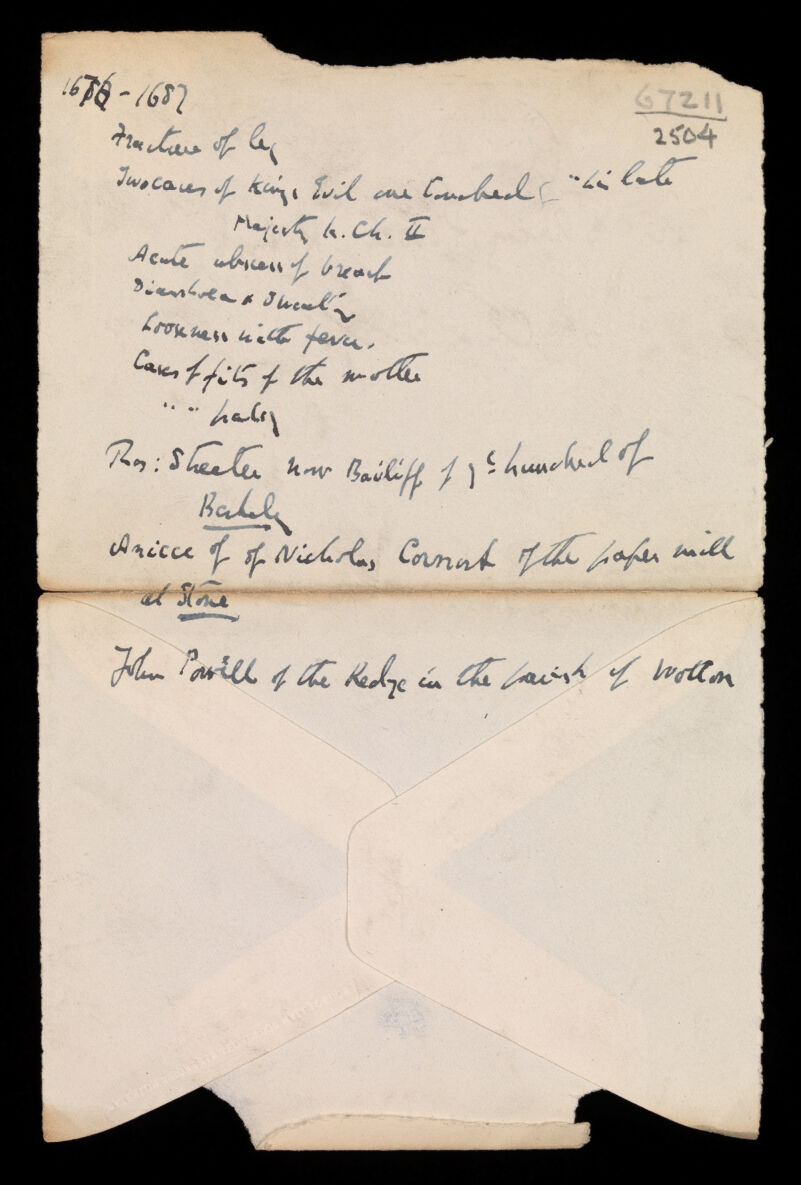 1676 - 1687
67211
2504
Fracture of leg
Two cases of Kings Evil one touched "his late
Majesty K. Ch. II
Acute abscess of breast
Diarrhoea &
Looseness with fever.
Cases of fits of the mother
" " palsy
Tho: Streeter now Bailiff of ye hundred of
A niece of of Nicholas of the paper mill
at Stone
John Powell of the Kedge in the parish of Wotton